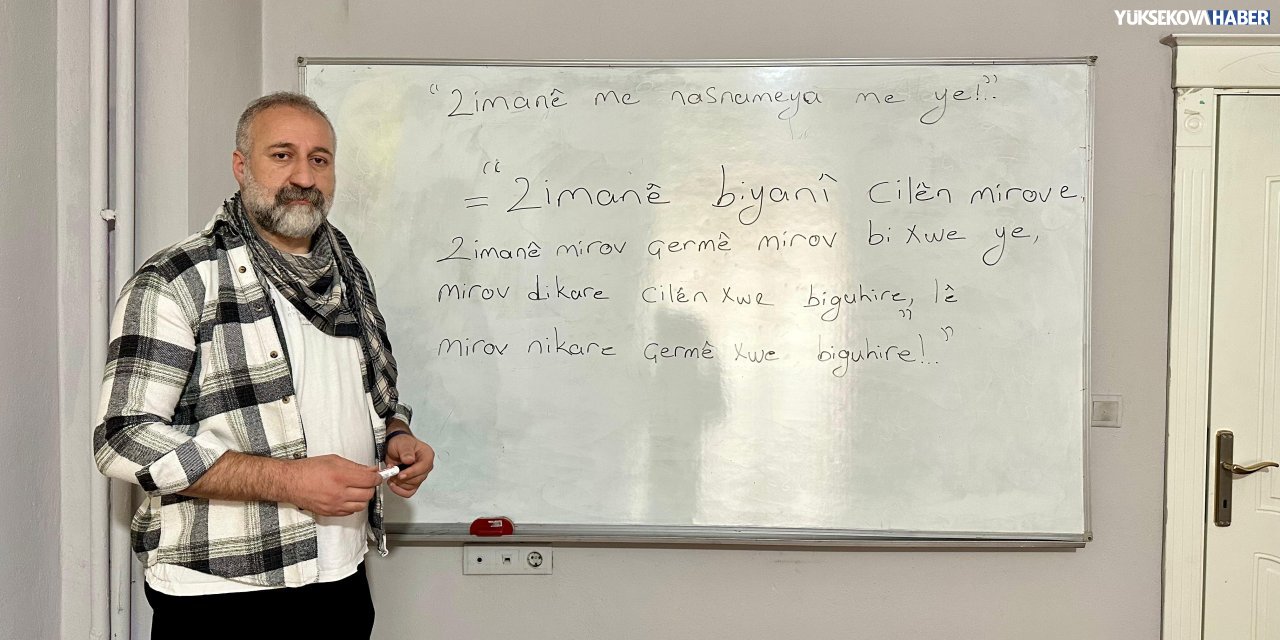 YÜKSEKOVA HABER
"Zimanê me nasnameya me ye!.."
= "Zimanê biyanî cilên mirove,
Zimanê mirov çermê mirov bi xwe ye,
mirov dikare cilên xwe biguhire, lê
mirov nikare çermê xwe biguhire!.."